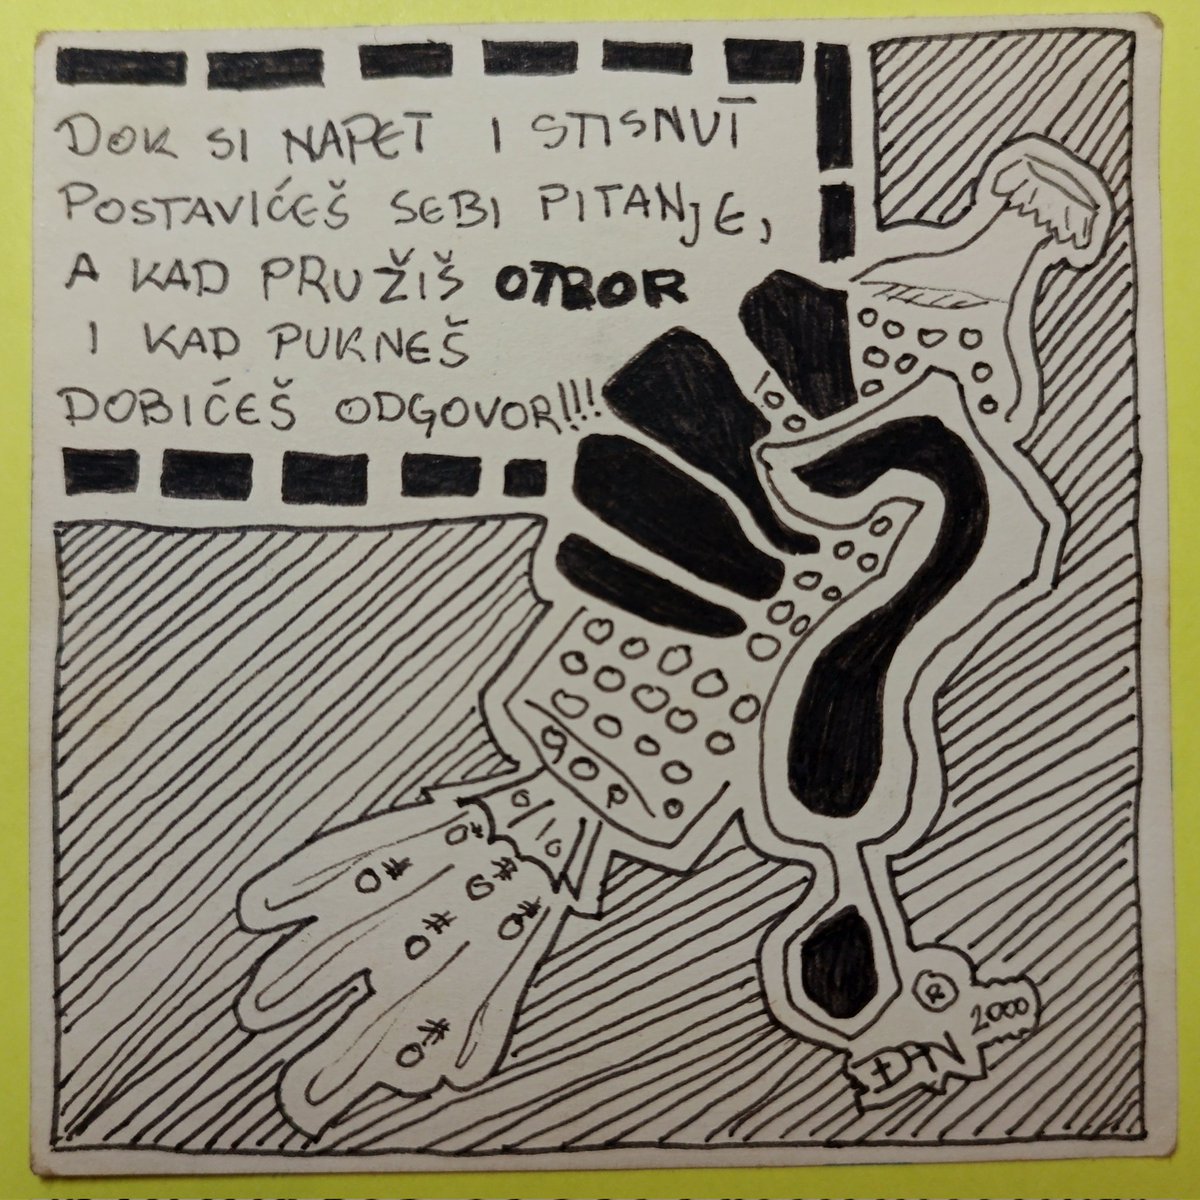 DOK SI NAPET I STISNUT
POSTAVIĆEŠ SEBI PITANJE,
A KAD PRUŽIŠ OTBOR
I KAD PUKNEŠ
DOBIĆEŠ ODGOVOR!!!
®
2000